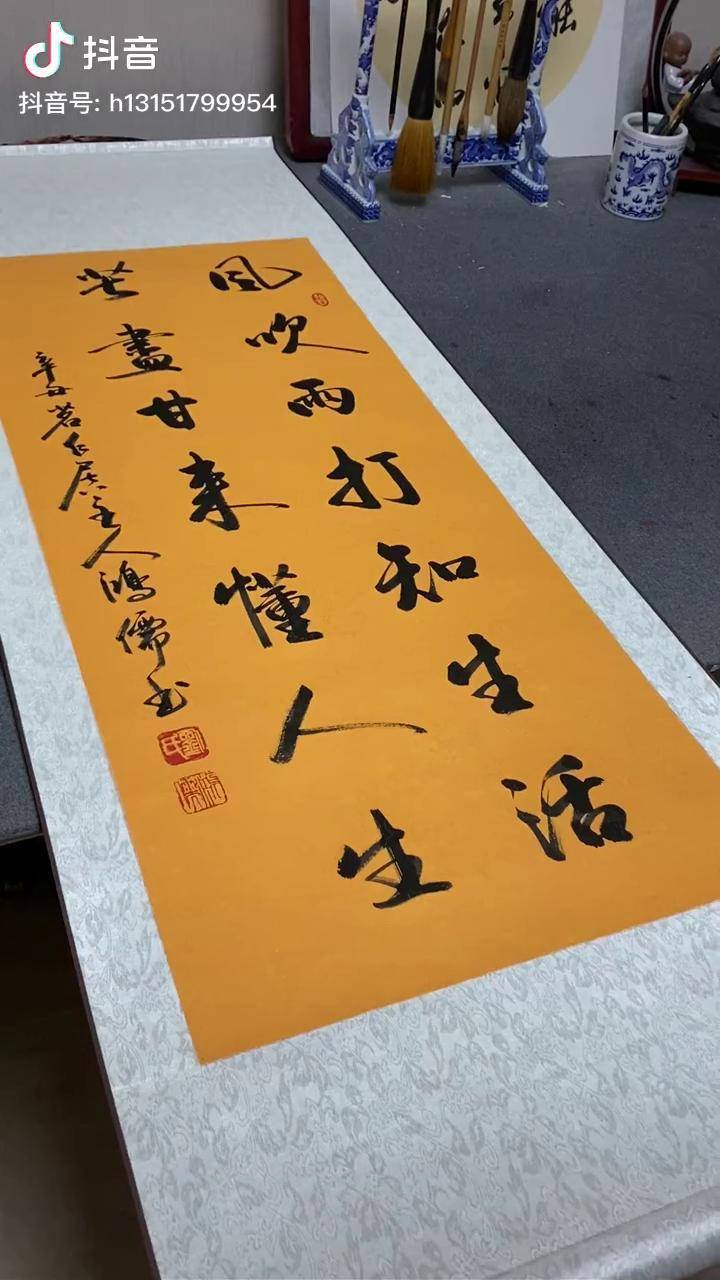 抖音
抖音号: h13151799954
風吹雨打知生活
苦盡甘来懂人生
辛丑茗居主人鴻儒书
劉氏